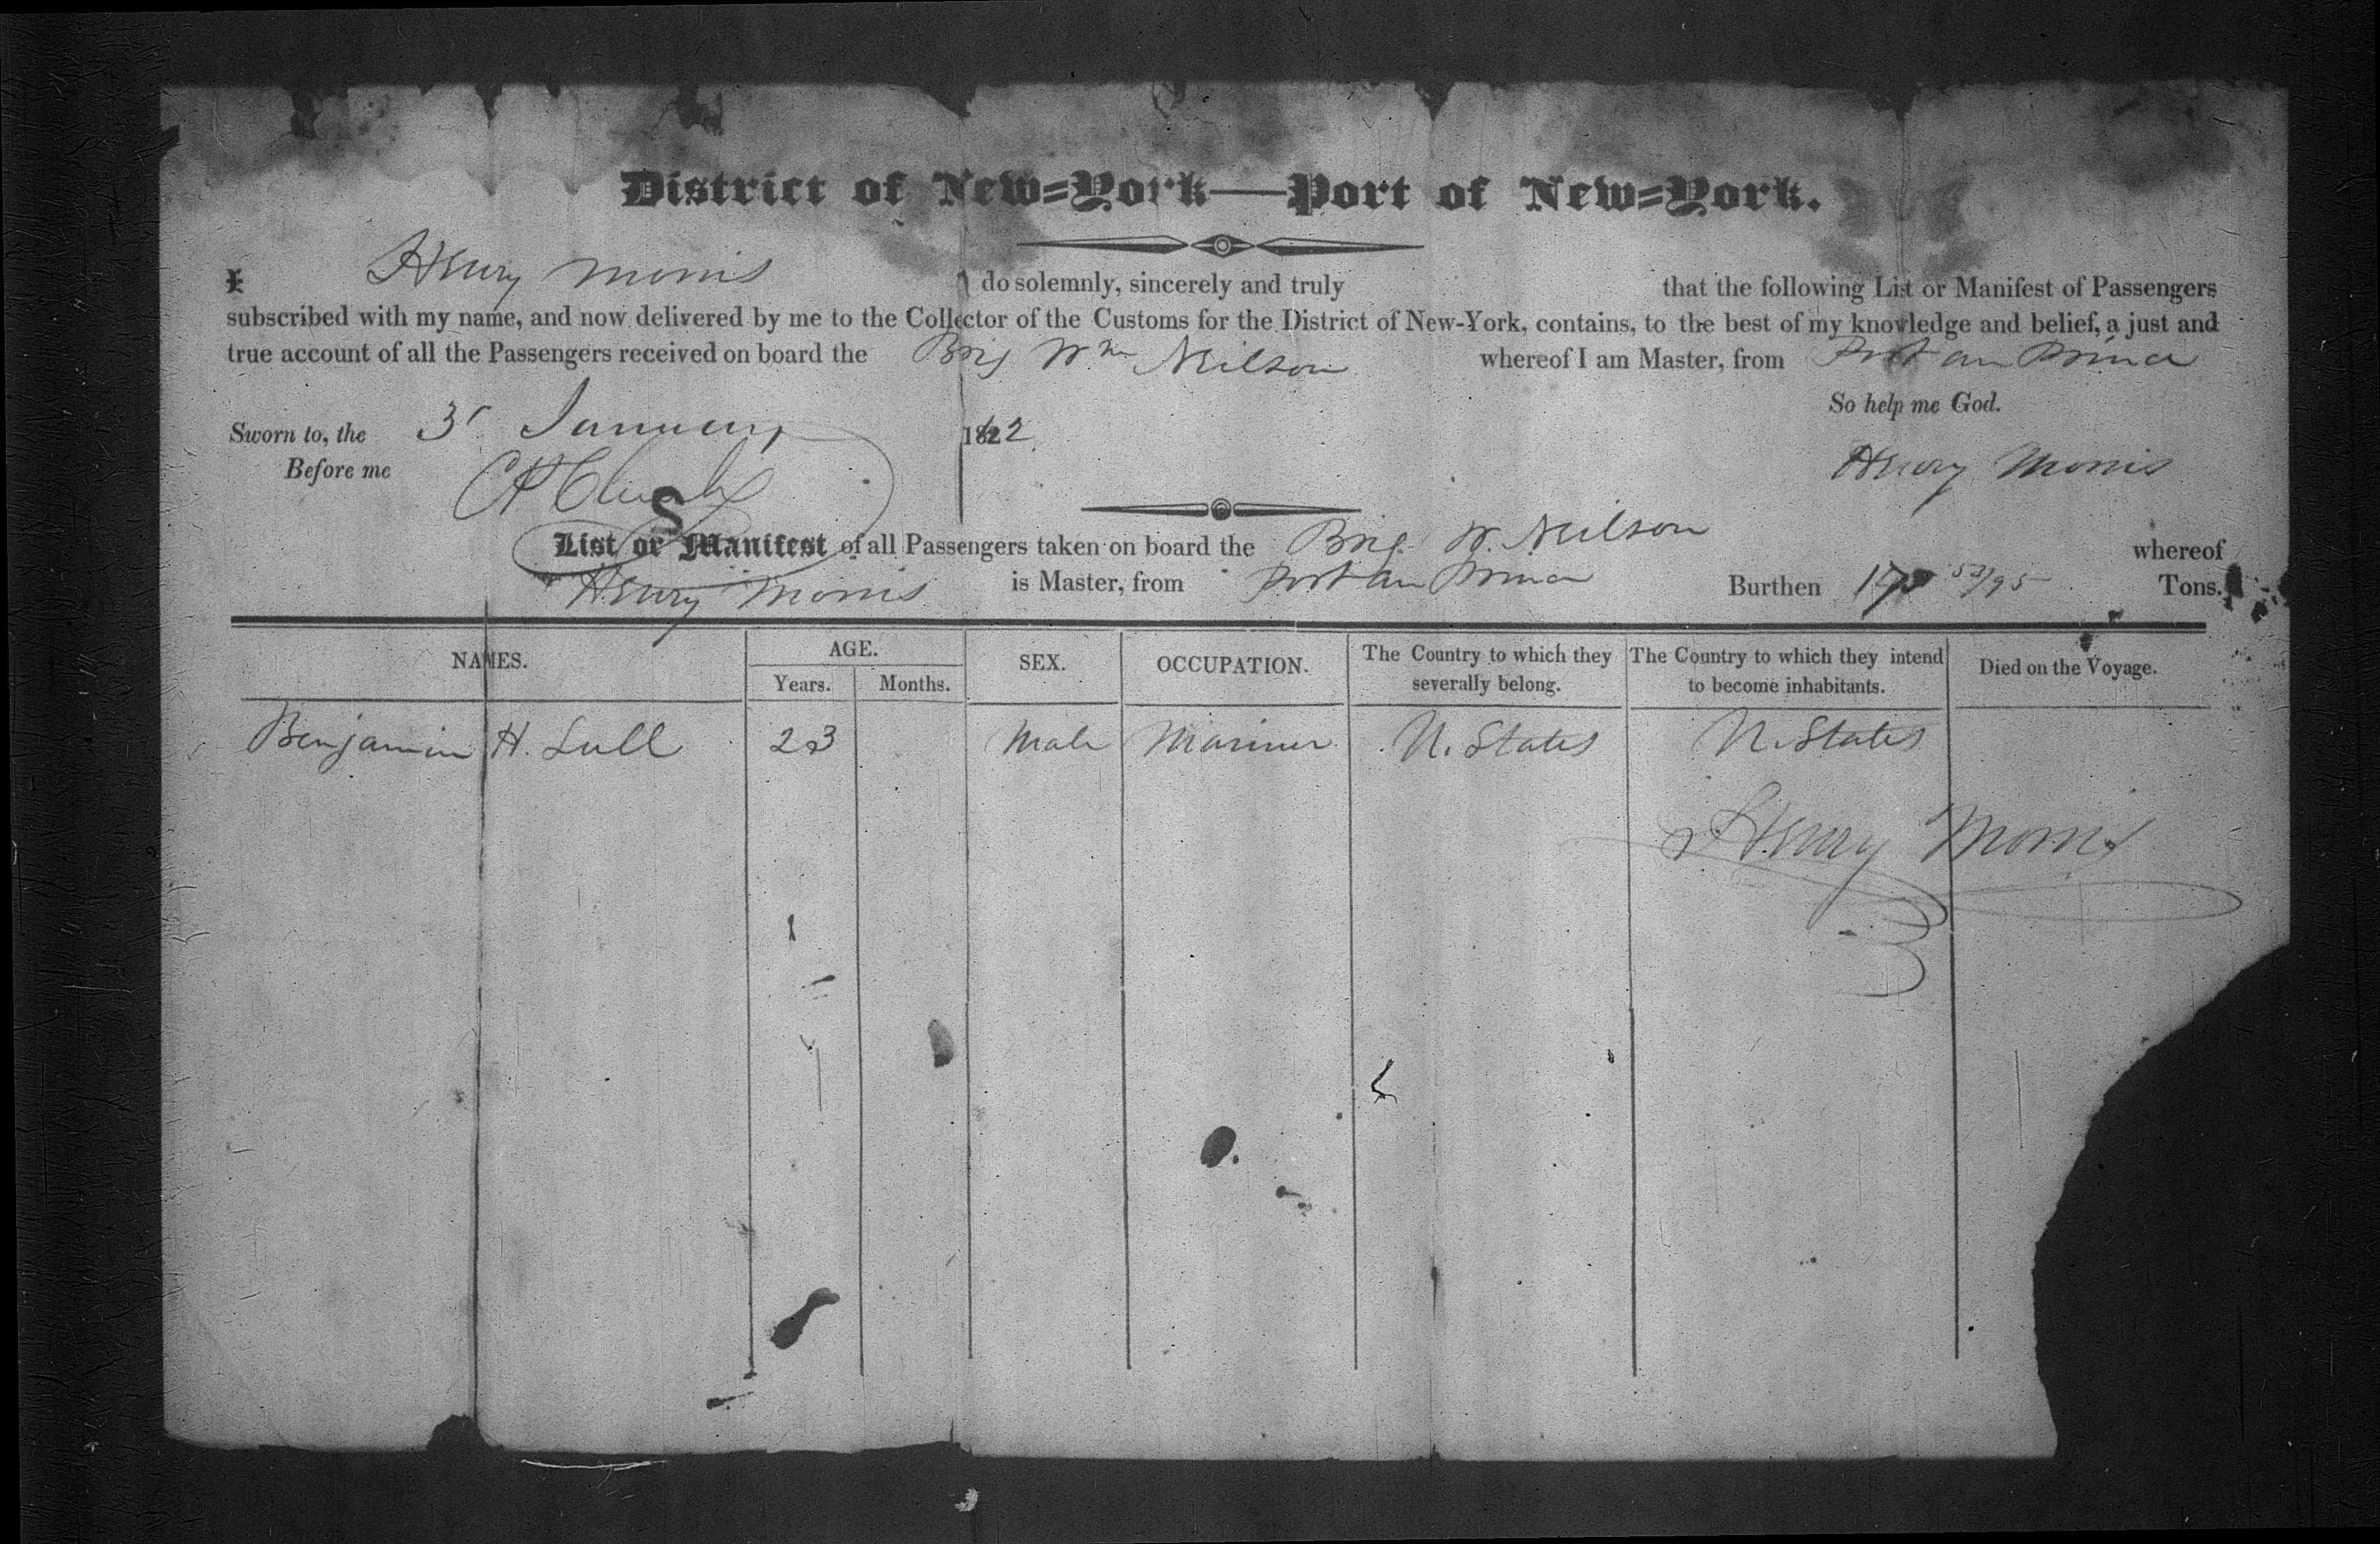 District of New=York—Port of New=York.
I Henry Morris do solemnly, sincerely and truly that the following List or Manifest of Passengers
subscribed with my name, and now delivered by me to the Collector of the Customs for the District of New-York, contains, to the best of my knowledge and belief, a just and
true account of all the Passengers received on board the Brig Wm Neilson whereof I am Master, from Port au Prince
So help me God.
Sworn to, the 3 January 1822
Before me Henry Morris
List or Manifest of all Passengers taken on board the Brig W. Neilson whereof
Henry Morris is Master, from Port au Prince Burthen 53/95 Tons.
NAMES. AGE. SEX. OCCUPATION. The Country to which they severally belong. The Country to which they intend to become inhabitants. Died on the Voyage.
Years. Months.
Benjamin H. Lull 23 Male Mariner U. States U. States
Henry Morris